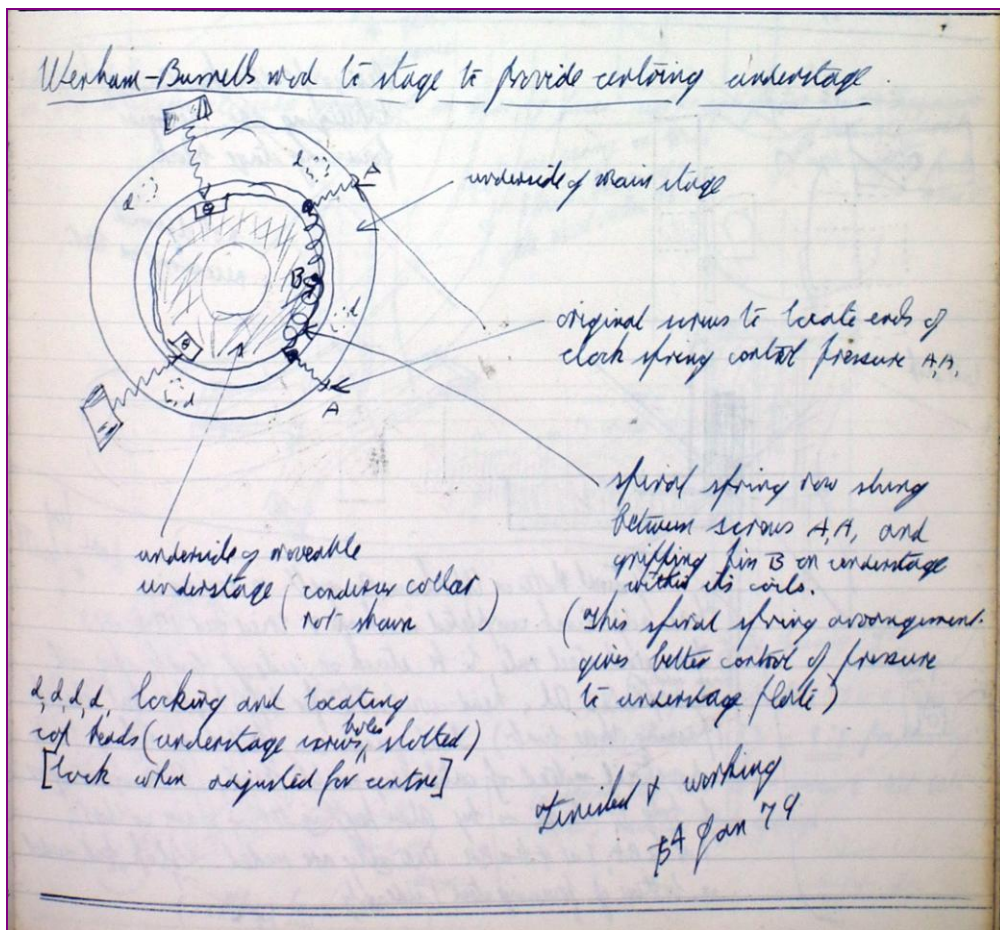 Wenham-Burrells mod to stage to provide centring understage.
d
d
A
underside of main stage
B
d
original screws to locate ends of
clock spring control pressure A,A,
d
A
spiral spring now slung
between screws A,A, and
gripping pin B on understage
within its coils.
(This spiral spring arrangement
gives better control of pressure
to understage plate)
underside of moveable
understage (condenser collar
not shown)
d,d,d,d, locking and locating
heads (understage screws holes slotted)
[lock when adjusted for centre]
Finished & working
Jan 79